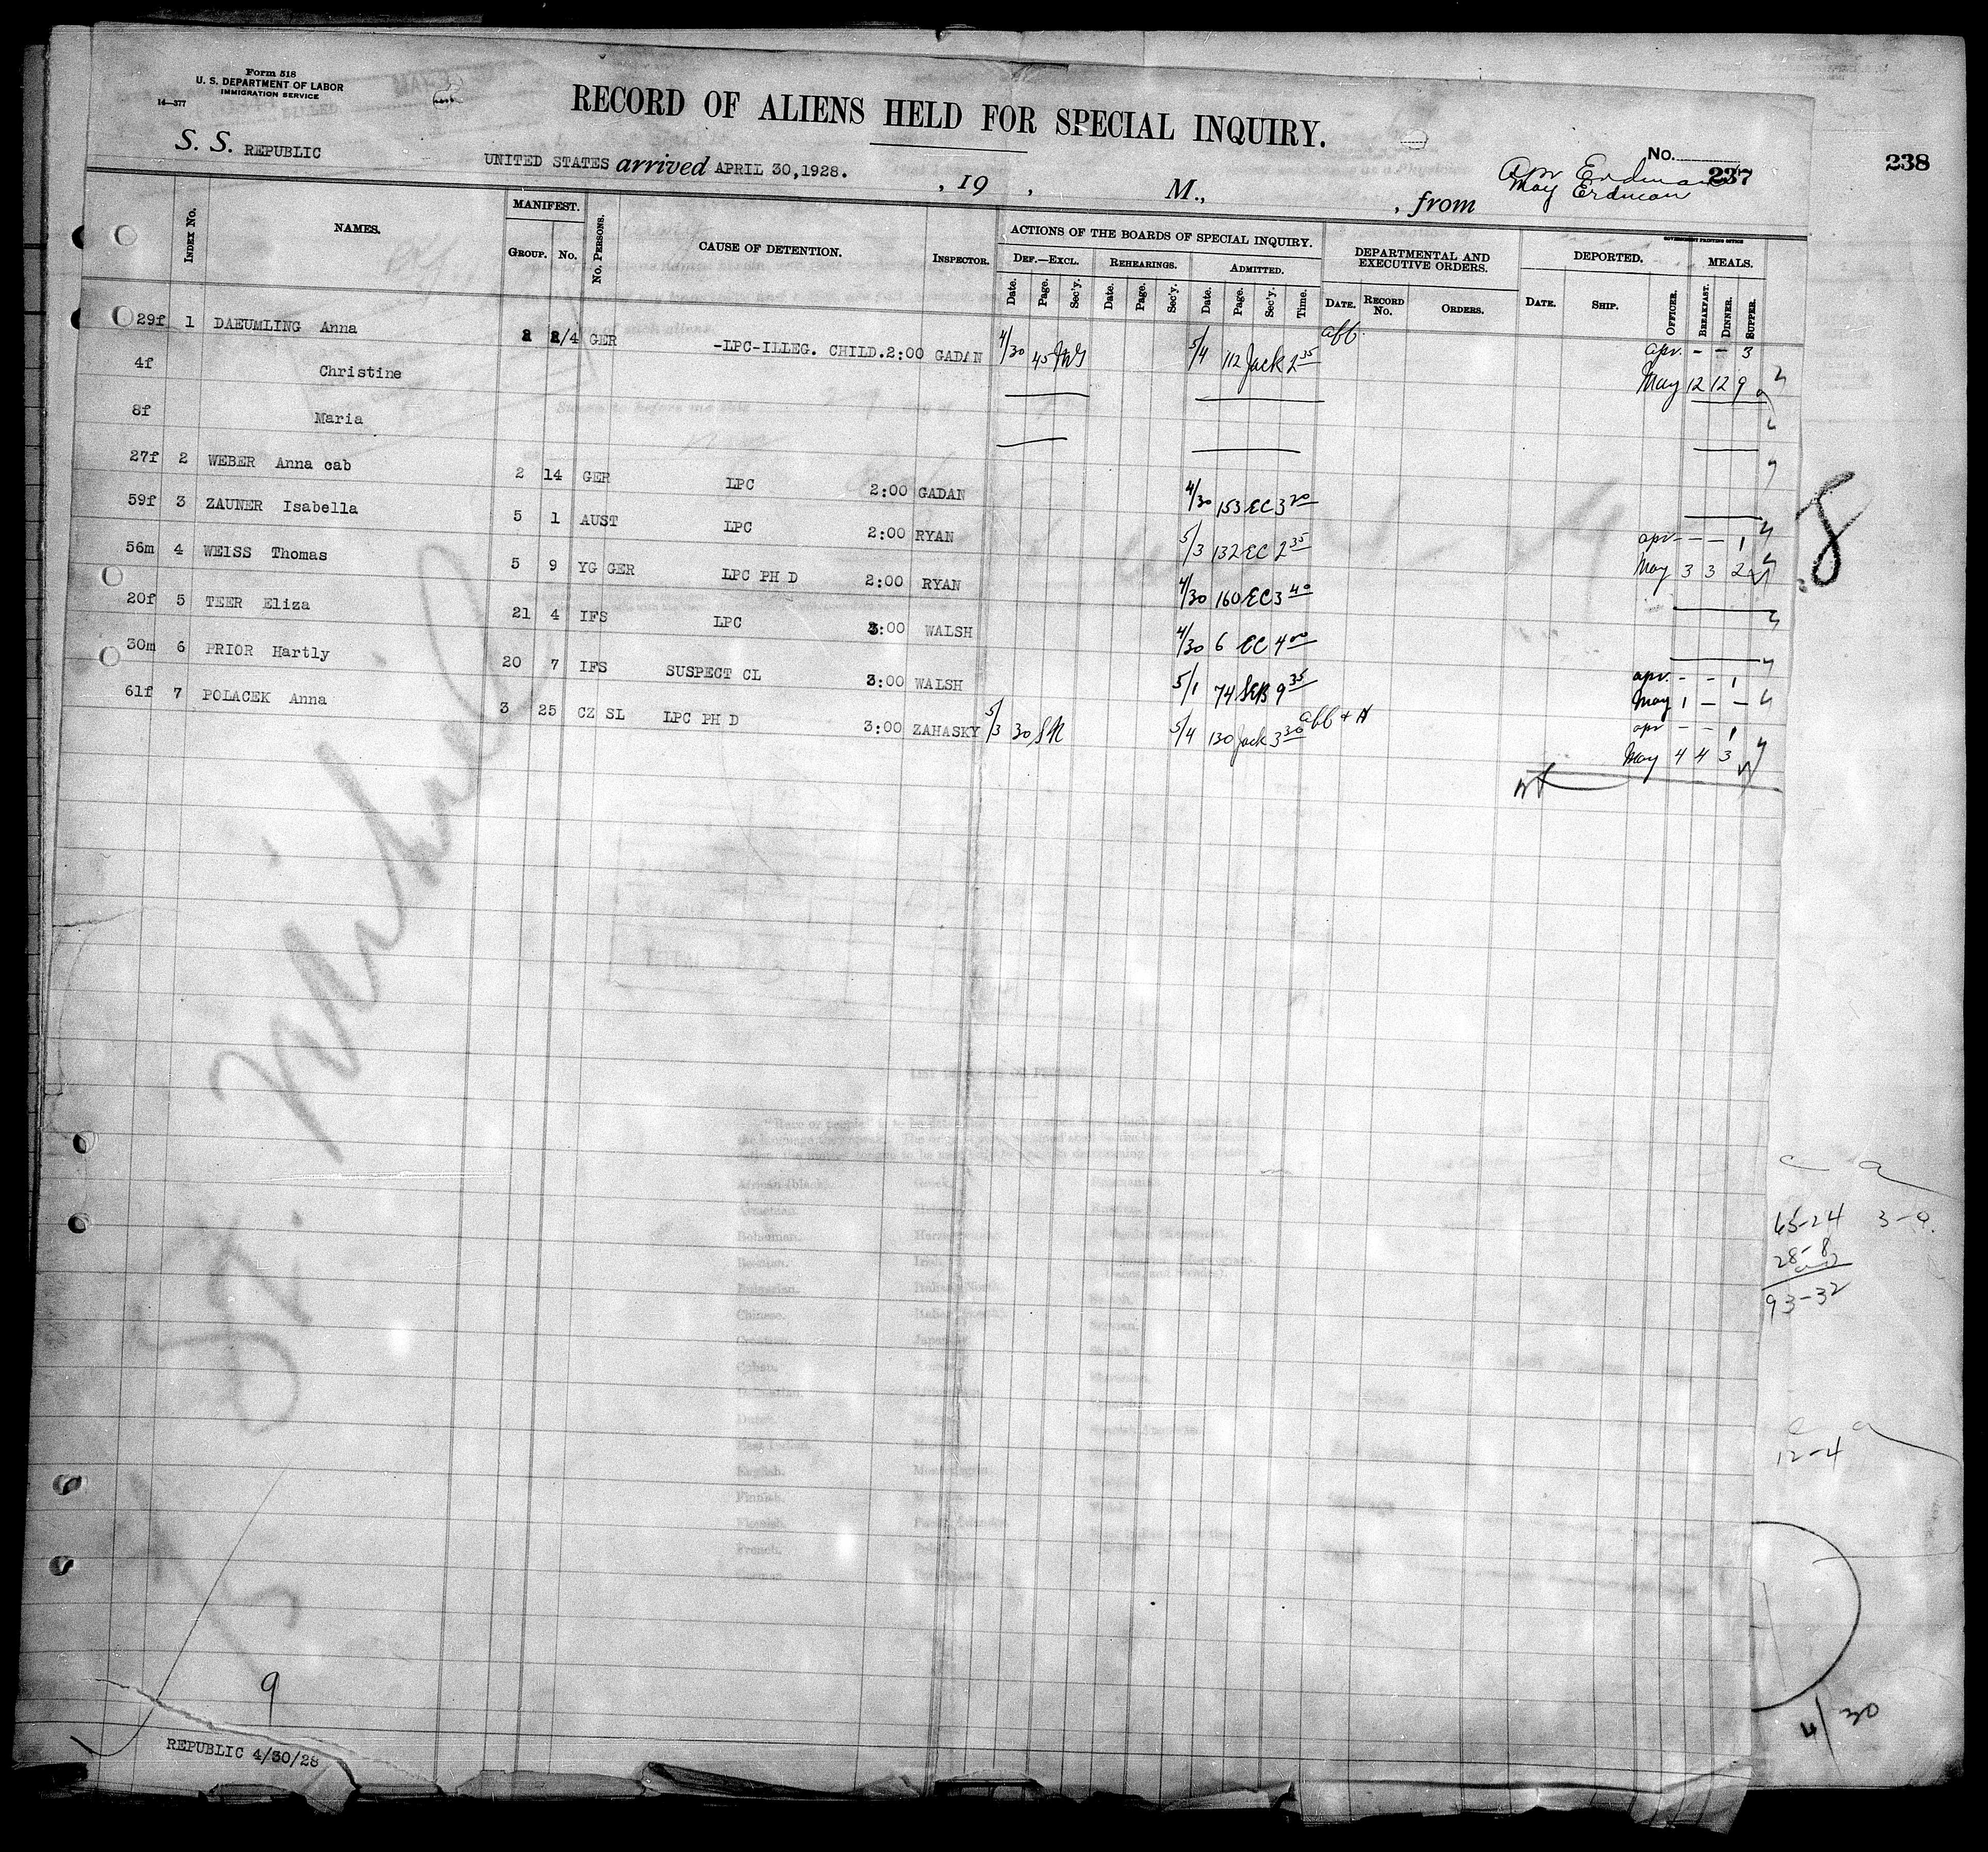 Form 518
U. S. DEPARTMENT OF LABOR
IMMIGRATION SERVICE
14—377
RECORD OF ALIENS HELD FOR SPECIAL INQUIRY.
No.
237
238
S. S. REPUBLIC
UNITED STATES arrived APRIL 30, 1928. , 19 , M., , from
Apr Erdman
May Erdman
INDEX No. NAMES. MANIFEST. GROUP. No. No. PERSONS. CAUSE OF DETENTION. INSPECTOR.
ACTIONS OF THE BOARDS OF SPECIAL INQUIRY.
DEF.—EXCL. REHEARINGS. ADMITTED.
Date. Page. Sec'y. Date. Page. Sec'y. Date. Page. Sec'y. Time.
DEPARTMENTAL AND EXECUTIVE ORDERS.
DATE. RECORD No. ORDERS.
DEPORTED.
DATE. SHIP. OFFICER.
GOVERNMENT PRINTING OFFICE
MEALS.
BREAKFAST. DINNER. SUPPER.
29f 1 DAEUMLING Anna 2/4 GER -LPC-ILLEG. CHILD. 2:00 GADAN 4/30 45 5/4 112 Jack 2 35 aff. Apr. - - 3
May 12 12 9
4f Christine
8f Maria
27f 2 WEBER Anna cab 2 14 GER LPC 2:00 GADAN 4/30 153 EC 3 20
59f 3 ZAUNER Isabella 5 1 AUST LPC 2:00 RYAN 5/3 132 EC 2 35 apr - - 1
May 3 3 2
56m 4 WEISS Thomas 5 9 YG GER LPC PH D 2:00 RYAN 4/30 160 EC 3 40
20f 5 TEER Eliza 21 4 IFS LPC 3:00 WALSH 4/30 6 EC 4 00
30m 6 PRIOR Hartly 20 7 IFS SUSPECT CL 3:00 WALSH 5/1 74 SEB 9 35 apr. - - 1
May 1 - -
61f 7 POLACEK Anna 3 25 CZ SL LPC PH D 3:00 ZAHASKY 5/3 30 SR 5/4 130 Jack 3 30 aff + A apr - - 1
May 4 4 3
8
St. Mihiel
65-24 3-0.
28-8
93-32
12-4
4/30
9
REPUBLIC 4/30/28